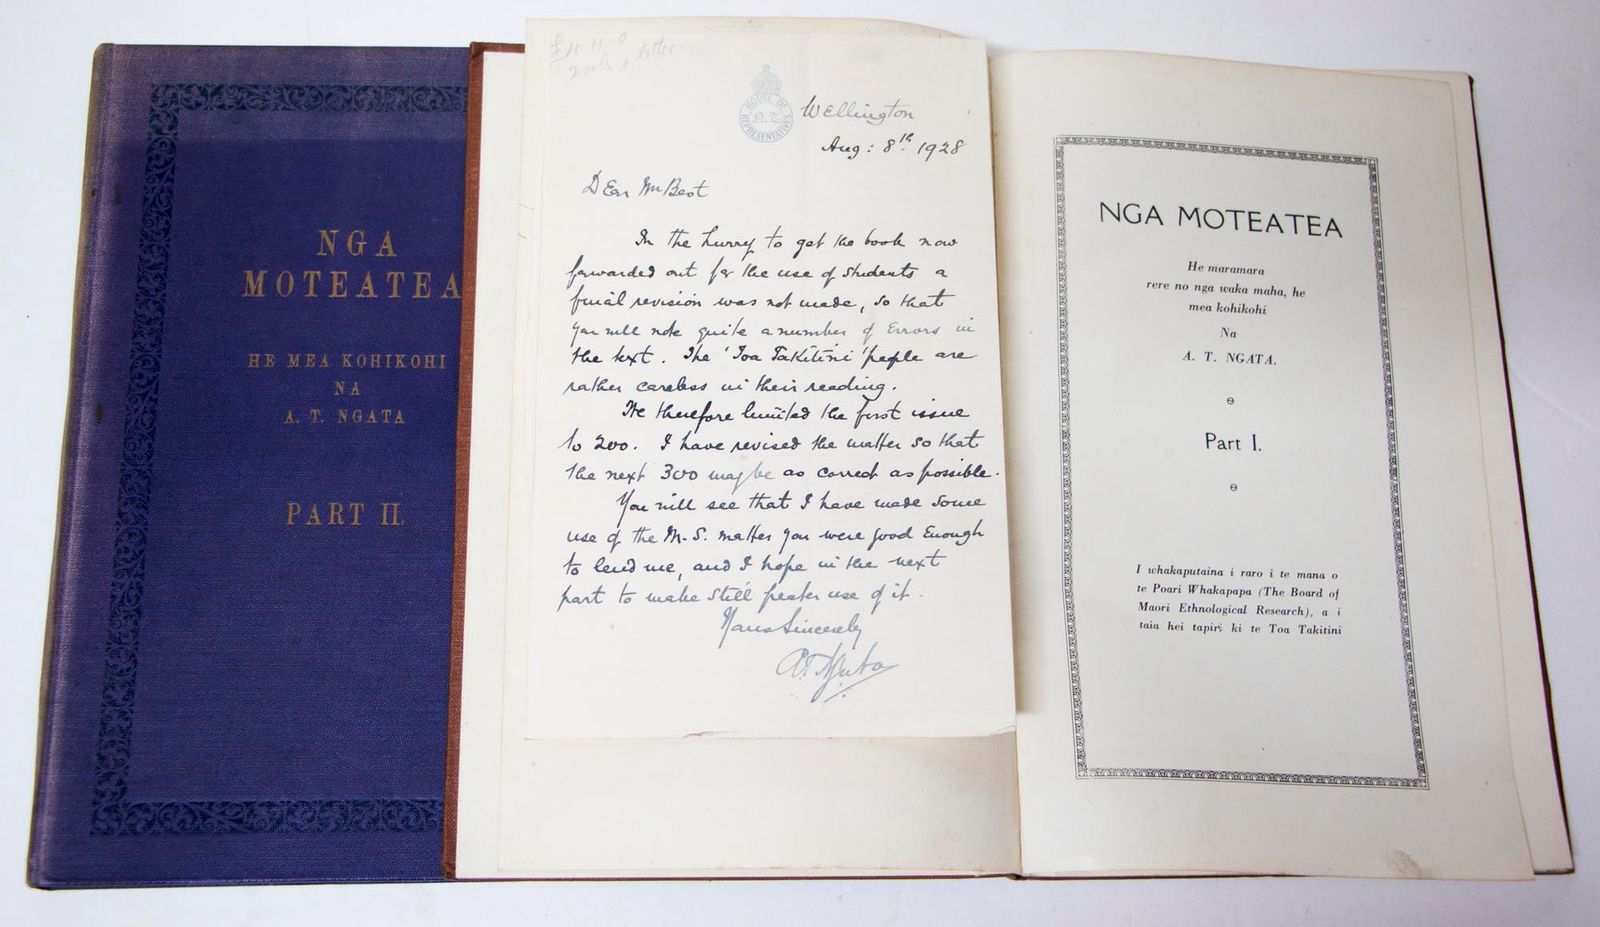 NGA
MOTEATEA
HE MEA KOHIKOHI
NA
A. T. NGATA
PART II.
£4.4.0
2 vols + letter
HOUSE OF
N.Z.
REPRESENTATIVES
Wellington
Aug: 8th 1928
Dear Mr Best
In the hurry to get the book now
forwarded out for the use of students a
final revision was not made, so that
you will note quite a number of errors in
the text. The 'Toa Takitini' people are
rather careless in their reading.
We therefore limited the first issue
to 200. I have revised the matter so that
the next 300 may be as correct as possible.
You will see that I have made some
use of the M.S. matter you were good enough
to lend me, and I hope in the next
part to make still greater use of it.
Yours Sincerely
A.T. Ngata
NGA MOTEATEA
He maramara
rere no nga waka maha, he
mea kohikohi
Na
A. T. NGATA.
Part I.
I whakaputaina i raro i te mana o
te Poari Whakapapa (The Board of
Maori Ethnological Research), a i
taia hei tapiri ki te Toa Takitini